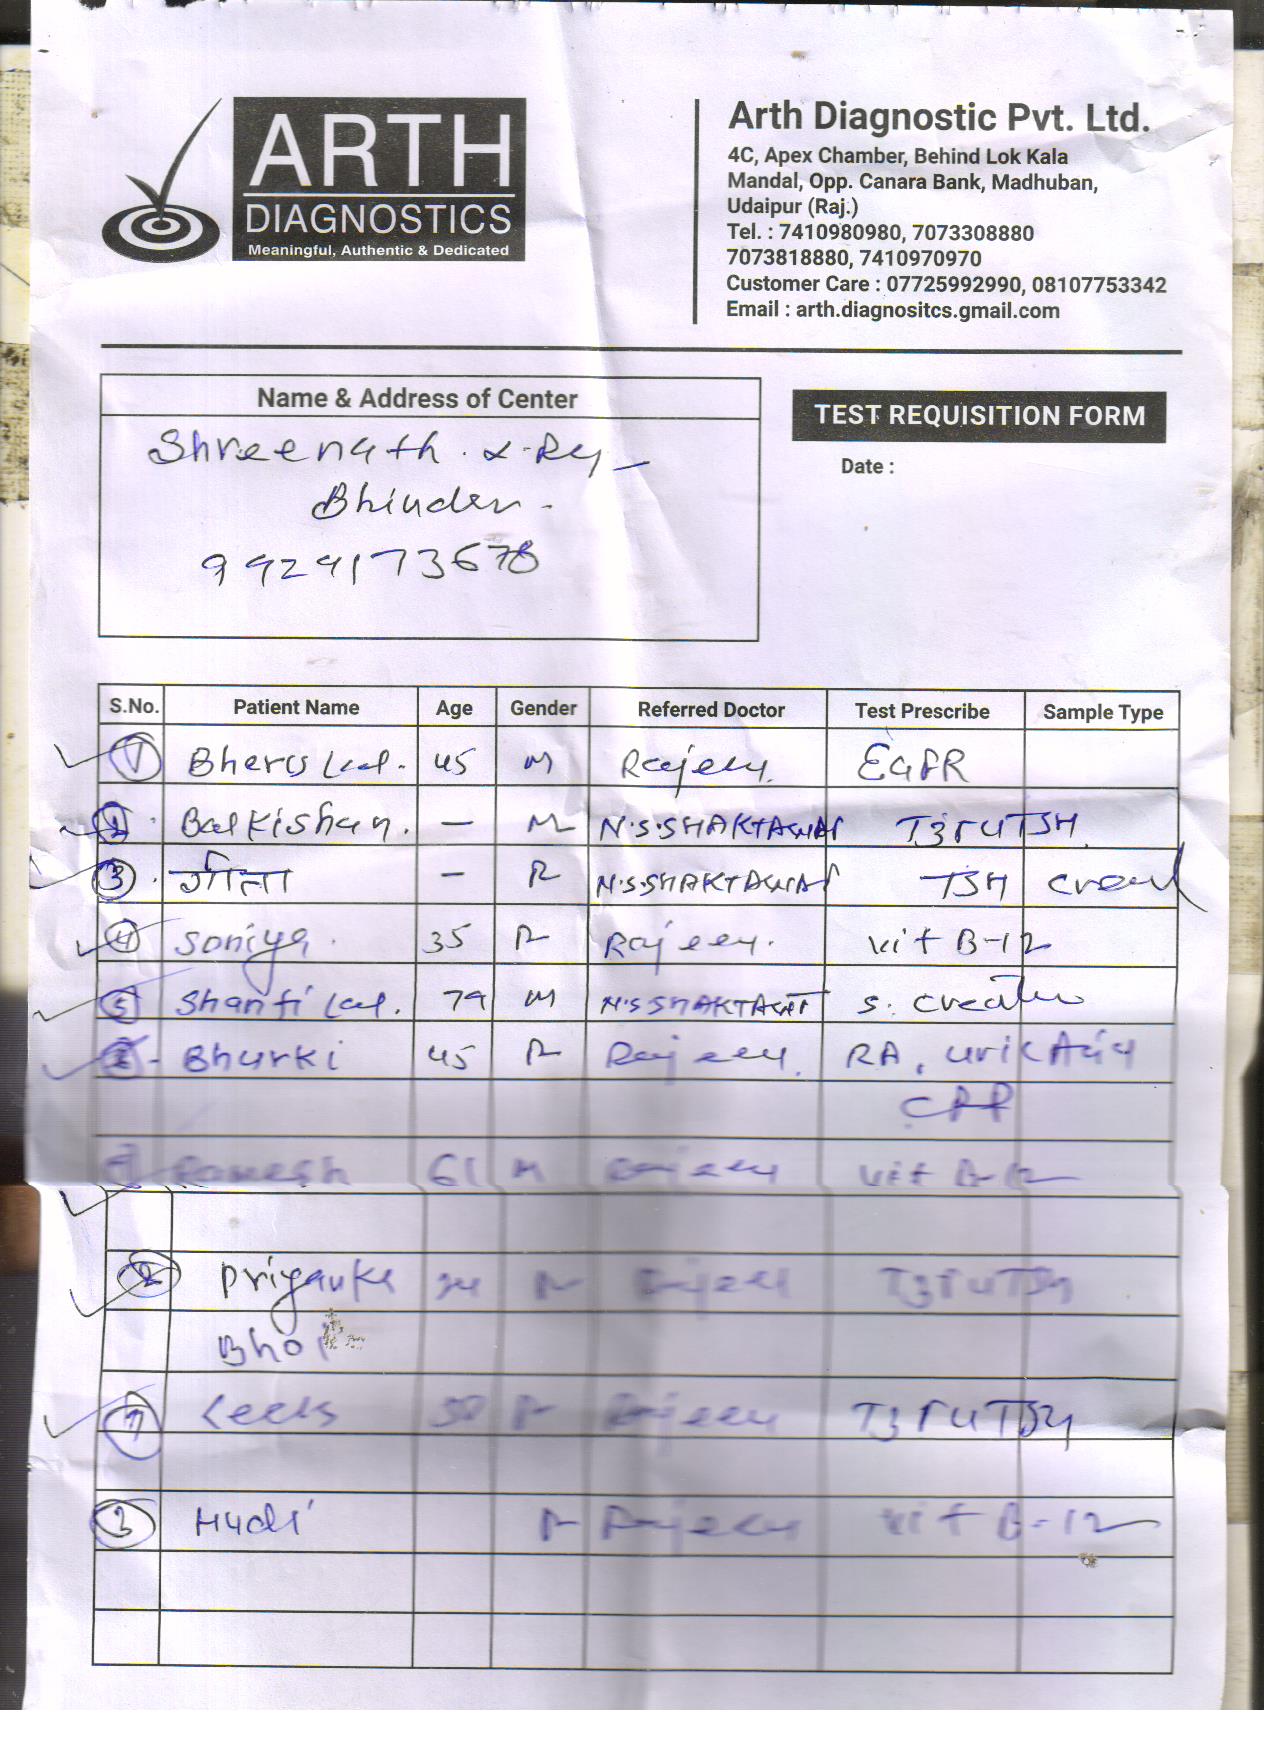 ARTH
DIAGNOSTICS
Meaningful, Authentic & Dedicated
Arth Diagnostic Pvt. Ltd.
4C, Apex Chamber, Behind Lok Kala
Mandal, Opp. Canara Bank, Madhuban,
Udaipur (Raj.)
Tel. : 7410980980, 7073308880
7073818880, 7410970970
Customer Care : 07725992990, 08107753342
Email : arth.diagnositcs.gmail.com
Name & Address of Center
TEST REQUISITION FORM
Date :
Shreenath X-Ray
Bhinder
9929173678
S.No. Patient Name Age Gender Referred Doctor Test Prescribe Sample Type
1 Bheru Lal. 45 M Rajeev
2 Balkishan. - M N.S.SHAKTAWAT T3T4TSH
3 गीता - F N.S.SHAKTAWAT TSH
4 Soniya 35 F Rajeev. vit B-12
5 Shanti Lal. 79 M N.S SHAKTAWAT S. Creatin
Bhurki 45 F Rajeev RA, uric Acid
Ramesh 61 M Rajeev vit B-12
Priyanka F Rajeev T3T4TSH
F Rajeev T3T4TSH
F Rajeev vit B-12